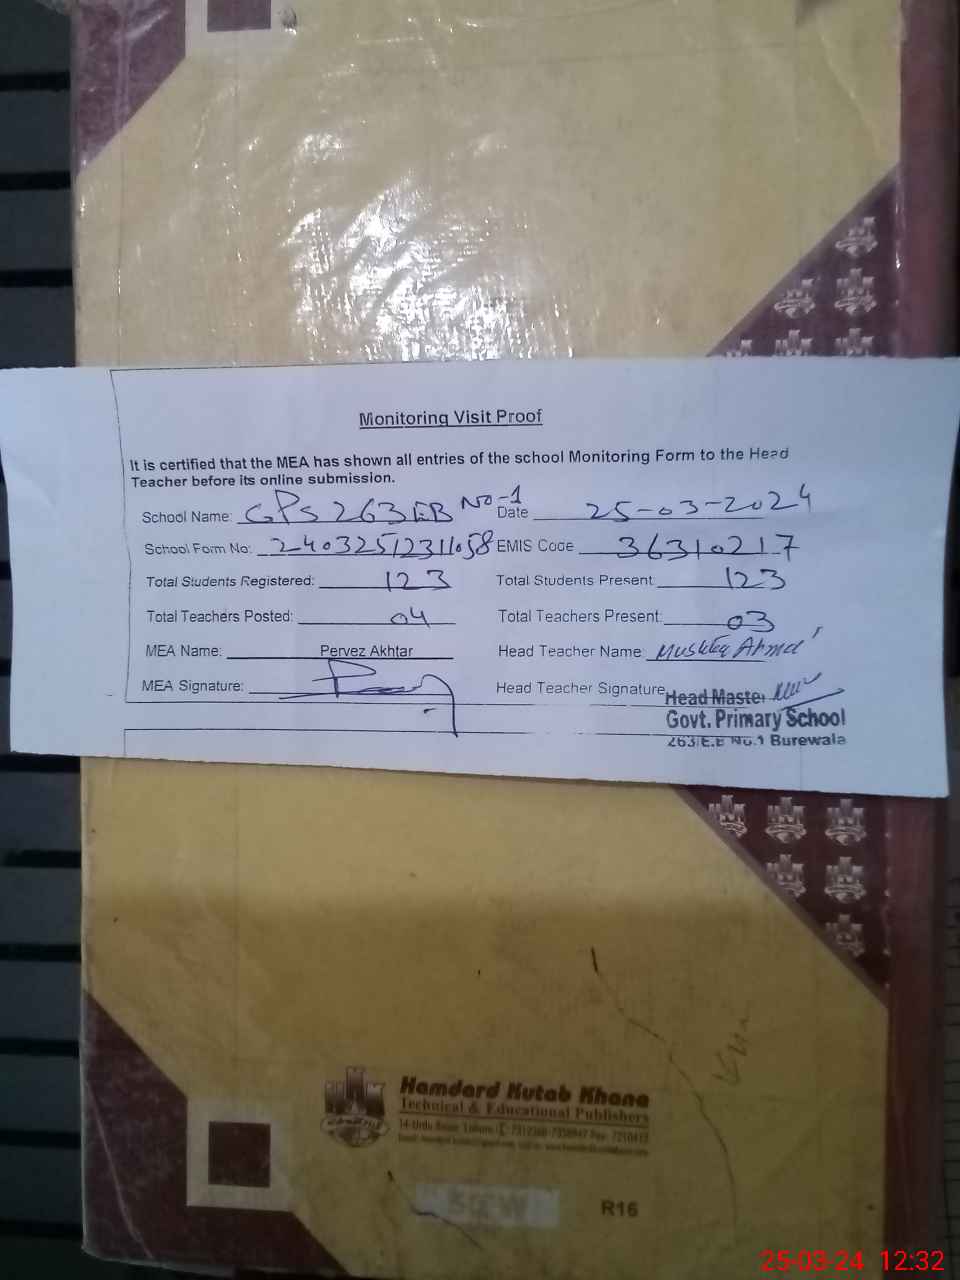 Monitoring Visit Proof
It is certified that the MEA has shown all entries of the school Monitoring Form to the Head
Teacher before its online submission.
School Name: GPS 263 EB No-1 Date 25-03-2024
School Form No: 24032512311058 EMIS Code 36310217
Total Students Registered: 123 Total Students Present 123
Total Teachers Posted: 04 Total Teachers Present: 03
MEA Name: Pervez Akhtar Head Teacher Name Ahmed
MEA Signature: Head Teacher Signature
Head Master
Govt. Primary School
263/E.B No.1 Burewala
Hamdard Kutab Khana
Technical & Educational Publishers
14-Urdu Bazar Lahore
R16
25-03-24 12:32